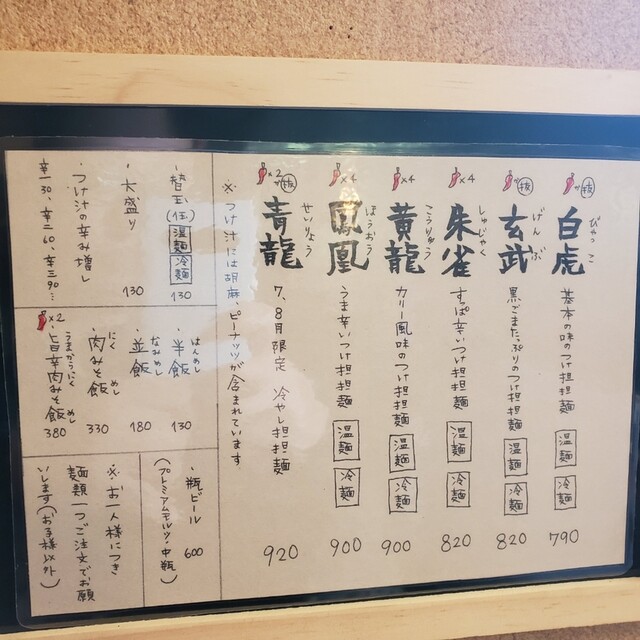 抜 びゃっこ
白虎 基本の味のつけ担担麺 温麺 冷麺 790
抜 げんぶ
玄武 黒ごまたっぷりのつけ担担麺 温麺 冷麺 820
×4 しゅじゃく
朱雀 すっぱ辛いつけ担担麺 温麺 冷麺 820
×4 こうりゅう
黄龍 カリー風味のつけ担担麺 温麺 冷麺 900
×4 ほうおう
鳳凰 うま辛いつけ担担麺 温麺 冷麺 900
×2 抜 せいりょう
青龍 7、8月限定 冷やし担担麺 920
※つけ汁には胡麻、ピーナッツが含まれています。
・替玉(伍) 温麺 冷麺 130
・大盛り 130
・つけ汁の辛み増し
辛一30、辛二60、辛三90…
はんめし
・半飯 130
なみめし
・並飯 180
にく めし
・肉みそ飯 330
×2 うまからにく めし
・旨辛肉みそ飯 380
・瓶ビール 600
(プレミアムモルツ・中瓶)
※お一人様につき
麺類一つご注文でお願
いします(お子様以外)